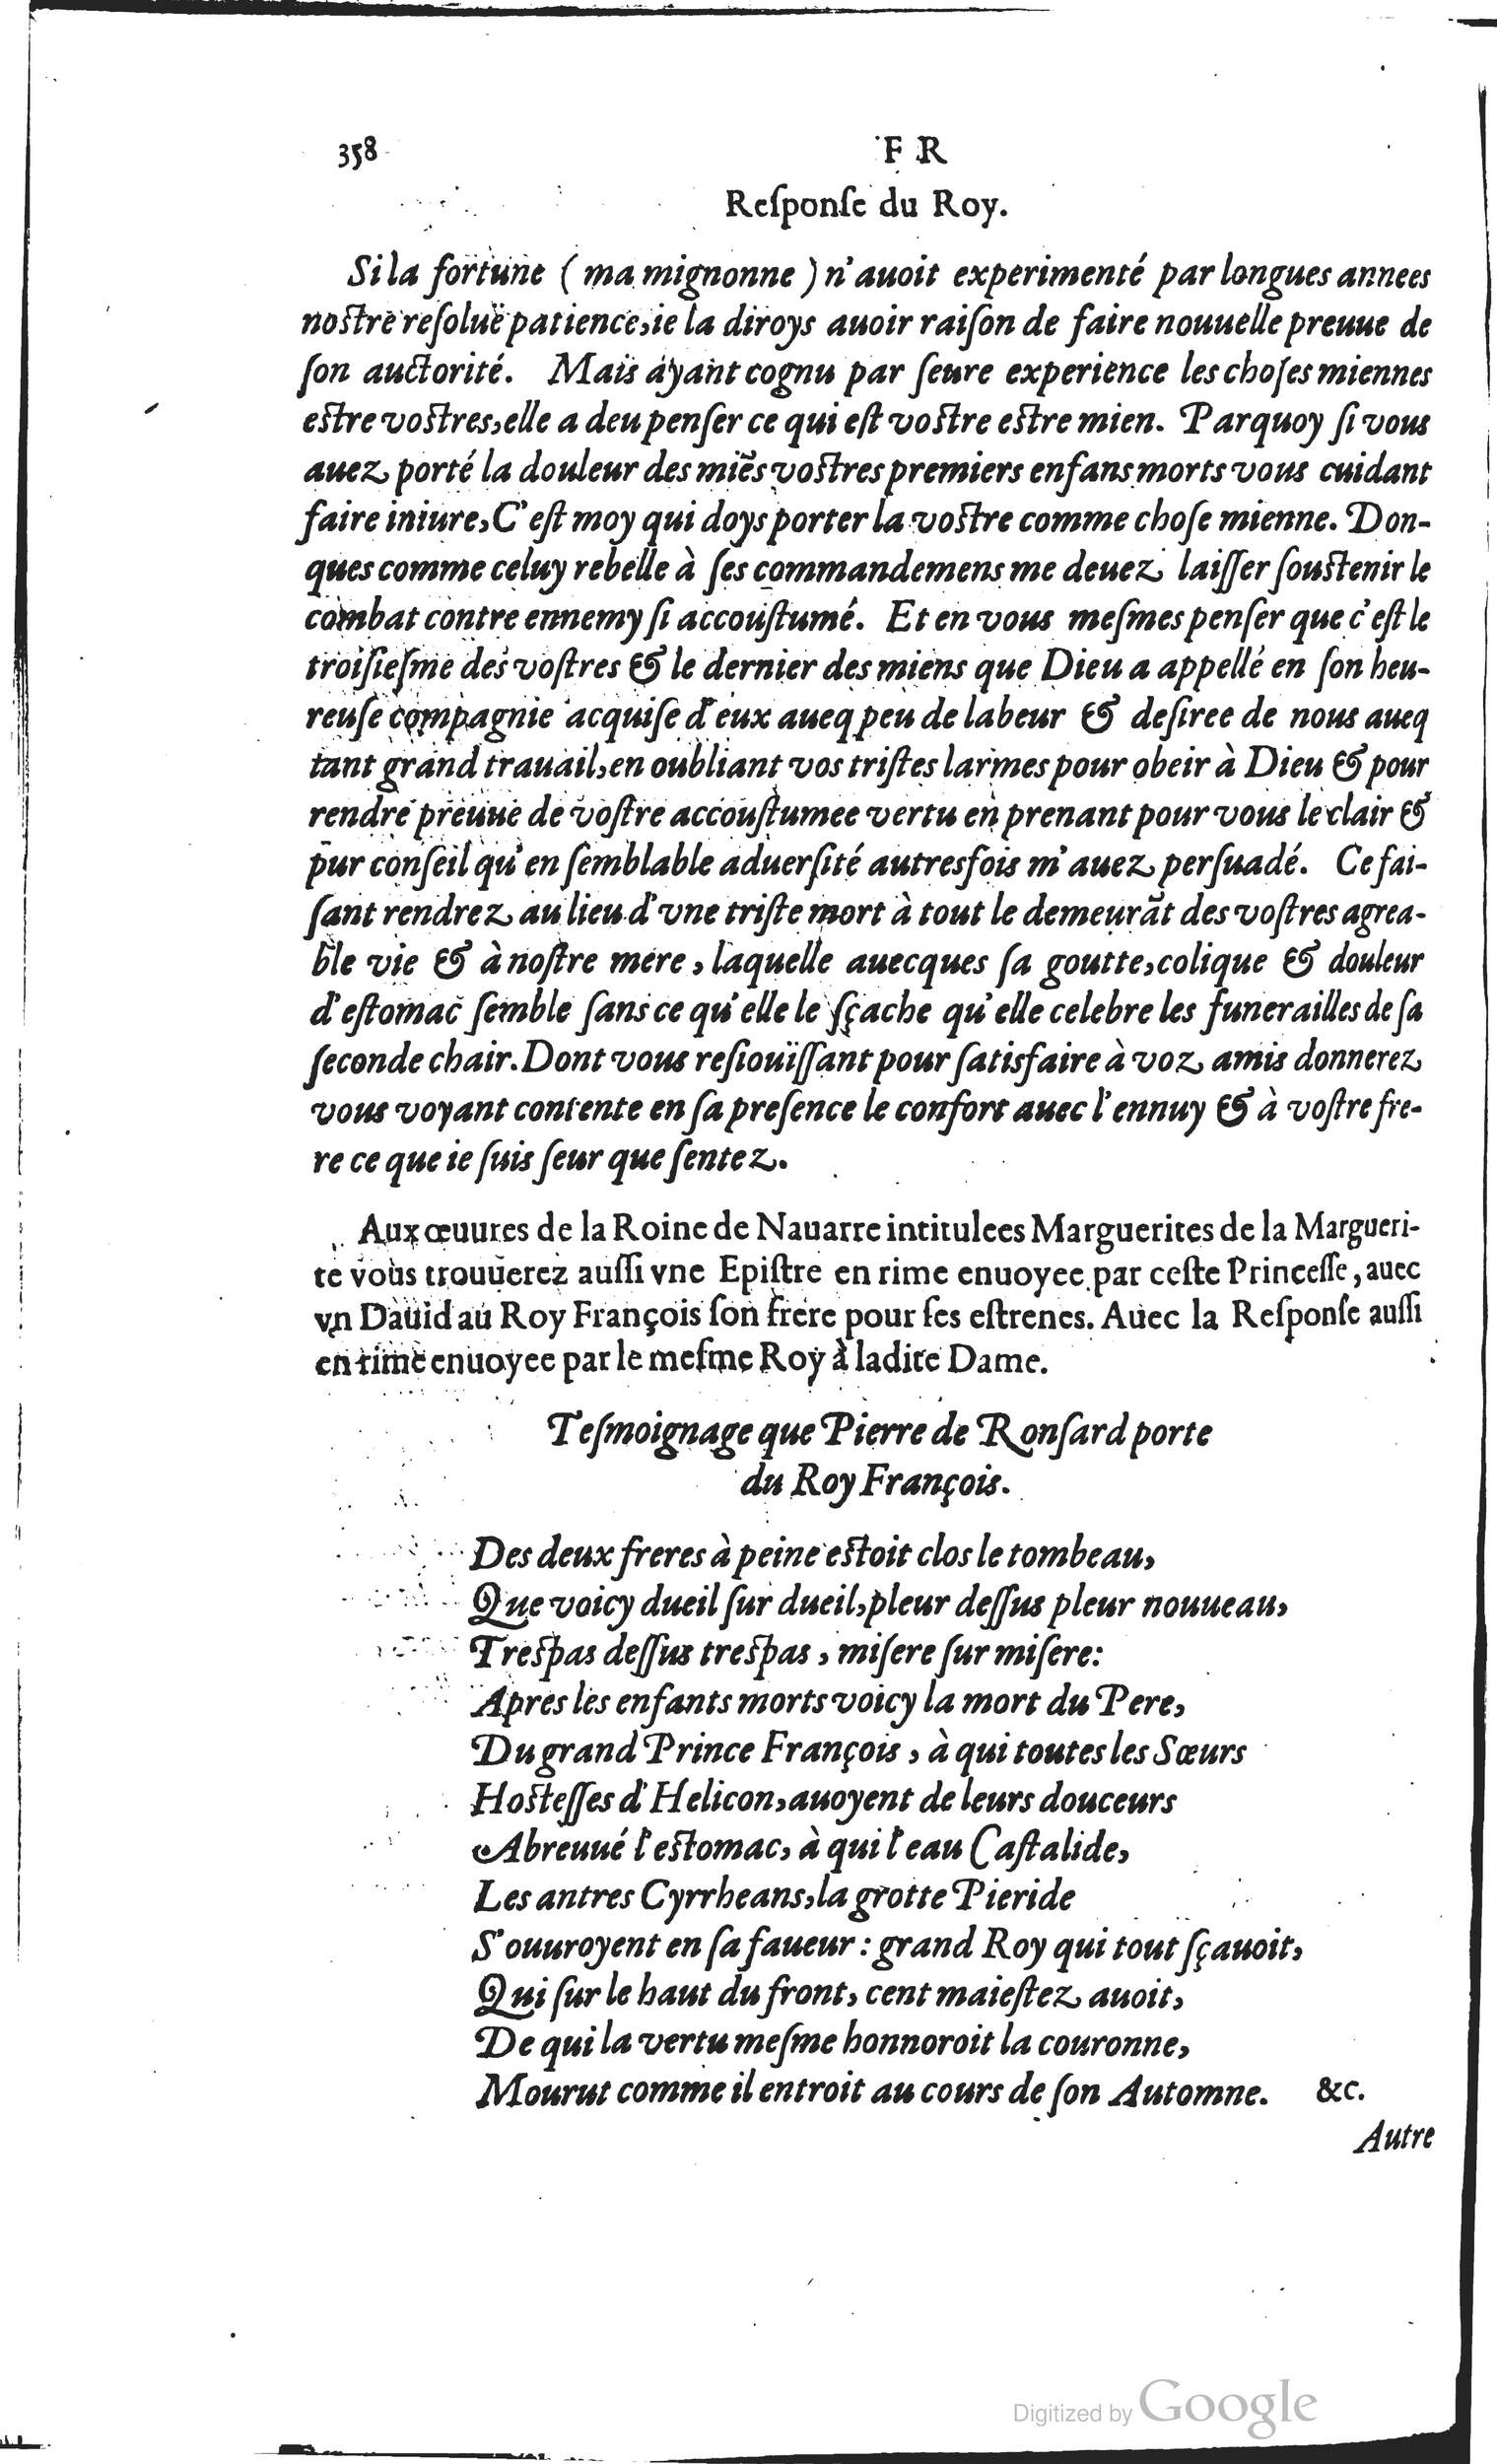 358 F R
Reſponſe du Roy.
Si la fortune ( ma mignonne ) n'auoit experimenté par longues annees
noſtre reſoluë patience, ie la diroys auoir raiſon de faire nouuelle preuue de
ſon auctorité. Mais ayant cognu par ſeure experience les choſes miennes
eſtre voſtres, elle a deu penſer ce qui eſt voſtre eſtre mien. Parquoy ſi vous
auez porté la douleur des miẽs voſtres premiers enfans morts vous cuidant
faire iniure, C'eſt moy qui doys porter la voſtre comme choſe mienne. Don-
ques comme celuy rebelle à ſes commandemens me deuez laiſſer ſouſtenir le
combat contre ennemy ſi accouſtumé. Et en vous meſmes penſer que c'eſt le
troiſieſme des voſtres & le dernier des miens que Dieu a appellé en ſon heu-
reuſe compagnie acquiſe d'eux aueq peu de labeur & deſiree de nous aueq
tant grand trauail, en oubliant vos triſtes larmes pour obeir à Dieu & pour
rendre preuue de voſtre accouſtumee vertu en prenant pour vous le clair &
pur conſeil qu'en ſemblable aduerſité autresfois m'auez perſuadé. Ce fai-
ſant rendrez au lieu d'vne triſte mort à tout le demeurãt des voſtres agrea-
ble vie & à noſtre mere, laquelle auecques ſa goutte, colique & douleur
d'eſtomac ſemble ſans ce qu'elle le ſçache qu'elle celebre les funerailles de ſa
ſeconde chair. Dont vous reſiouïſſant pour ſatisfaire à voz amis donnerez
vous voyant contente en ſa preſence le confort auec l'ennuy & à voſtre fre-
re ce que ie ſuis ſeur que ſentez.
Aux œuures de la Roine de Nauarre intitulees Marguerites de la Margueri-
te vous trouuerez auſſi vne Epiſtre en rime enuoyee par ceſte Princeſſe, auec
vn Dauid au Roy François ſon frere pour ſes eſtrenes. Auec la Reſponſe auſſi
en rime enuoyee par le meſme Roy à ladite Dame.
Teſmoignage que Pierre de Ronſard porte
du Roy François.
Des deux freres à peine eſtoit clos le tombeau,
Que voicy dueil ſur dueil, pleur deſſus pleur nouueau,
Treſpas deſſus treſpas, miſere ſur miſere:
Apres les enfants morts voicy la mort du Pere,
Du grand Prince François, à qui toutes les Sœurs
Hoſteſſes d'Helicon, auoyent de leurs douceurs
Abreuué l'eſtomac, à qui l'eau Caſtalide,
Les antres Cyrrheans, la grotte Pieride
S'ouuroyent en ſa faueur : grand Roy qui tout ſçauoit,
Qui ſur le haut du front, cent maieſtez auoit,
De qui la vertu meſme honnoroit la couronne,
Mourut comme il entroit au cours de ſon Automne. &c.
Autre
Digitized by Google